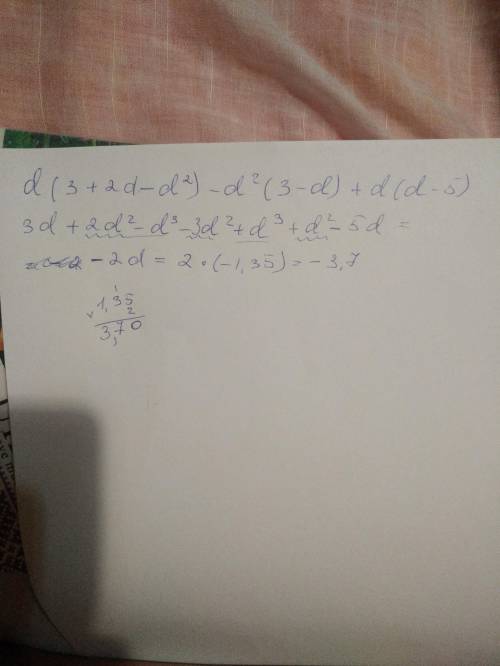 d (3 + 2d - d²) - d² (3 - d) + d (d - 5)
3d + 2d² - d³ - 3d² + d³ + d² - 5d =
- 2d = 2 · (-1,35) = - 3,7
1
1,35
× 2
3,70